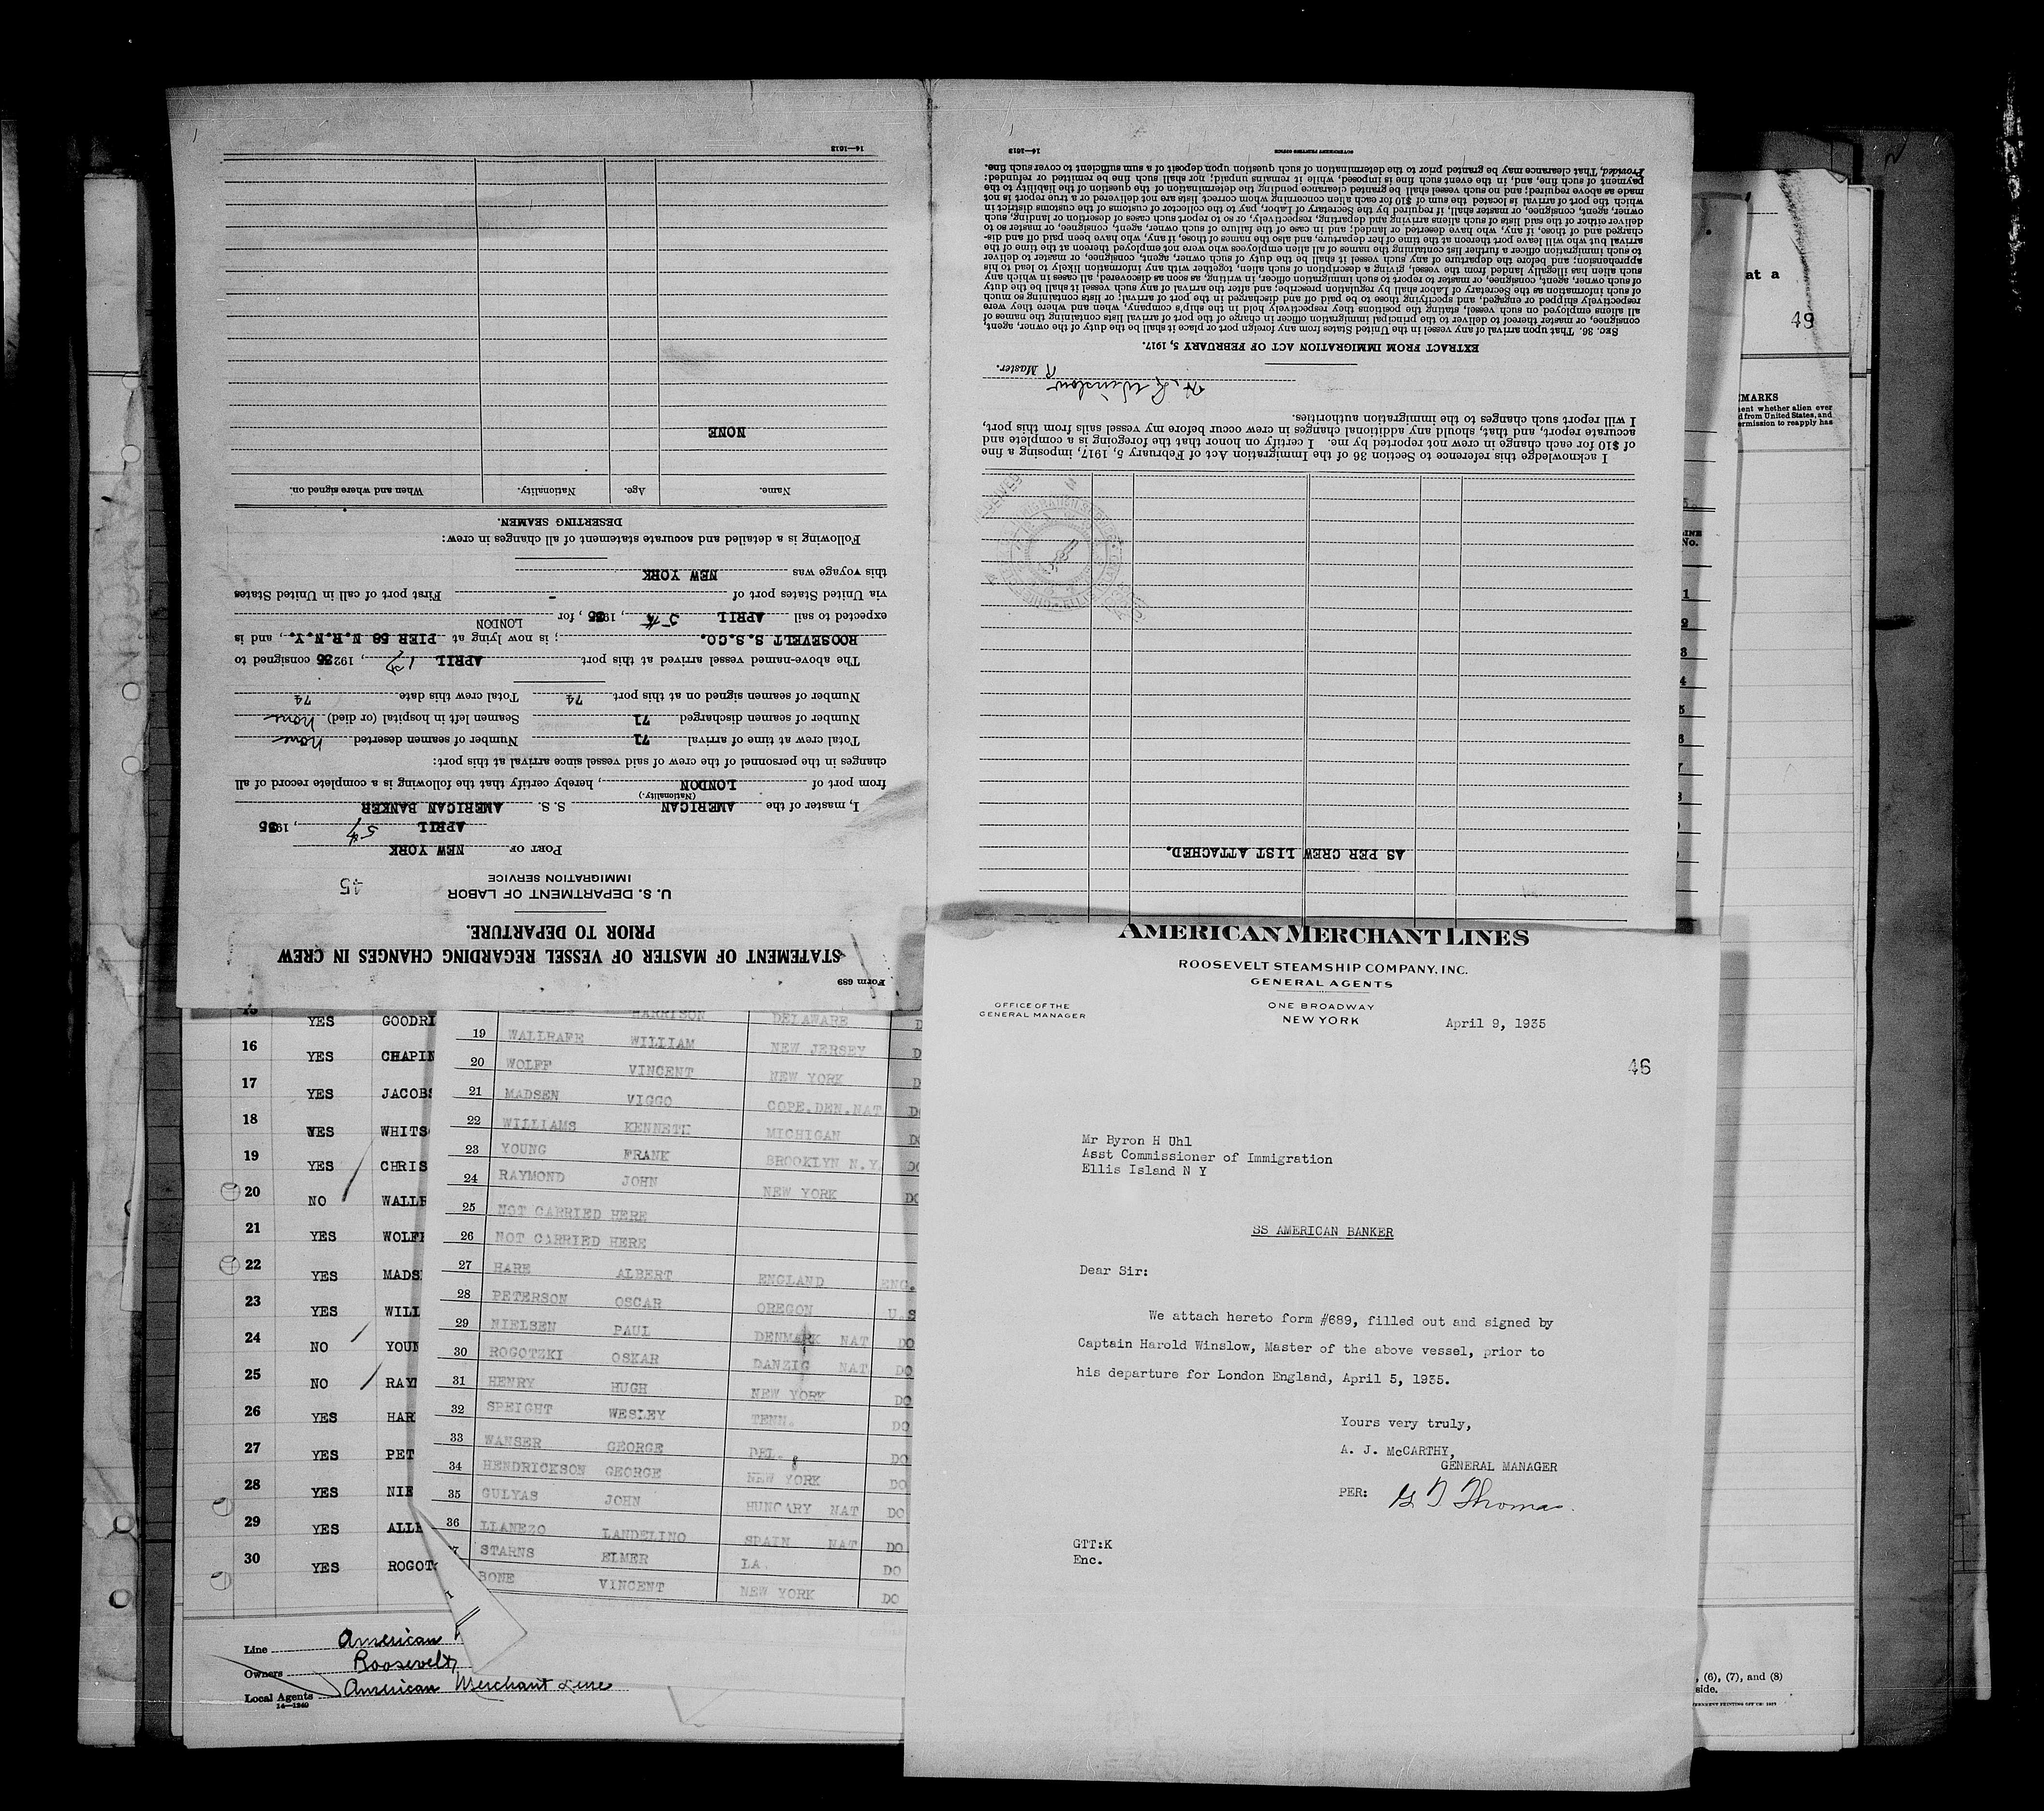 Form 689
STATEMENT OF MASTER OF VESSEL REGARDING CHANGES IN CREW
PRIOR TO DEPARTURE.
U. S. DEPARTMENT OF LABOR
IMMIGRATION SERVICE
45
PORT OF NEW YORK
APRIL 5th, 1935
I, master of the AMERICAN S. S. AMERICAN BANKER
(Nationality.)
from port of LONDON, hereby certify that the following is a complete record of all
changes in the personnel of the crew of said vessel since arrival at this port:
Total crew at time of arrival 71 Number of seamen deserted None
Number of seamen discharged 71 Seamen left in hospital (or died) None
Number of seamen signed on at this port 74 Total crew this date 74
The above-named vessel arrived at this port APRIL 1st, 1935 consigned to
ROOSEVELT S.S.CO.; is now lying at PIER 58 N.R.N.Y., and is
expected to sail APRIL 5th, 1935, for LONDON
via United States port of - First port of call in United States
this voyage was NEW YORK
Following is a detailed and accurate statement of all changes in crew:
DESERTING SEAMEN.
Name. Age. Nationality. When and where signed on.
NONE
14—1613
AS PER CREW LIST ATTACHED.
I acknowledge this reference to Section 36 of the Immigration Act of February 5, 1917, imposing a fine
of $10 for each change in crew not reported by me. I certify on honor that the foregoing is a complete and
accurate report, and that, should any additional changes in crew occur before my vessel sails from this port,
I will report such changes to the immigration authorities.
H. Winslow
Master.
EXTRACT FROM IMMIGRATION ACT OF FEBRUARY 5, 1917.
SEC. 36. That upon arrival of any vessel in the United States from any foreign port or place it shall be the duty of the owner, agent,
consignee, or master thereof to deliver to the principal immigration officer in charge of the port of arrival lists containing the names of
all aliens employed on such vessel, stating the positions they respectively hold in the ship's company, when and where they were
respectively shipped or engaged, and specifying those to be paid off and discharged in the port of arrival; or lists containing so much
of such information as the Secretary of Labor shall by regulation prescribe; and after the arrival of any such vessel it shall be the duty
of such owner, agent, consignee, or master to report to such immigration officer, in writing, as soon as discovered, all cases in which any
such alien has illegally landed from the vessel, giving a description of such alien, together with any information likely to lead to his
apprehension; and before the departure of any such vessel it shall be the duty of such owner, agent, consignee, or master to deliver
to such immigration officer a further list containing the names of all alien employees who were not employed thereon at the time of the
arrival but who will leave port thereon at the time of her departure, and also the names of those, if any, who have been paid off and dis-
charged and of those, if any, who have deserted or landed; and in case of the failure of such owner, agent, consignee, or master so to
deliver either of the said lists of such aliens arriving and departing, respectively, or so to report such cases of desertion or landing, such
owner, agent, consignee, or master shall, if required by the Secretary of Labor, pay to the collector of customs of the customs district in
which the port of arrival is located the sum of $10 for each alien concerning whom correct lists are not delivered or a true report is not
made as above required; and no such vessel shall be granted clearance pending the determination of the question of the liability to the
payment of such fine, and, in the event such fine is imposed, while it remains unpaid; nor shall such fine be remitted or refunded:
Provided, That clearance may be granted prior to the determination of such question upon deposit of a sum sufficient to cover such fine.
14—1613
GOVERNMENT PRINTING OFFICE
AMERICAN MERCHANT LINES
ROOSEVELT STEAMSHIP COMPANY, INC.
GENERAL AGENTS
OFFICE OF THE
GENERAL MANAGER
ONE BROADWAY
NEW YORK
April 9, 1935
46
Mr Byron H Uhl
Asst Commissioner of Immigration
Ellis Island N Y
SS AMERICAN BANKER
Dear Sir:
We attach hereto form #689, filled out and signed by
Captain Harold Winslow, Master of the above vessel, prior to
his departure for London England, April 5, 1935.
Yours very truly,
A. J. McCARTHY,
GENERAL MANAGER
PER: G T Thomas.
GTT:K
Enc.
HARRISON DELAWARE
19 WALLRAFE WILLIAM NEW JERSEY
20 WOLFF VINCENT NEW YORK
21 MADSEN VIGGO COPE.DEN.NAT
22 WILLIAMS KENNETH MICHIGAN DO
23 YOUNG FRANK BROOKLYN N.Y. DO
24 RAYMOND JOHN NEW YORK DO
25 NOT CARRIED HERE
26 NOT CARRIED HERE
27 HARE ALBERT ENGLAND ENG.
28 PETERSON OSCAR OREGON U.S
29 NIELSEN PAUL DENMARK NAT DO
30 ROGOTZKI OSKAR DANZIG NAT DO
31 HENRY HUGH NEW YORK DO
32 SPEIGHT WESLEY TENN. DO
33 WANSER GEORGE DEL. DO
34 HENDRICKSON GEORGE NEW YORK DO
35 GULYAS JOHN HUNGARY NAT DO
36 LLANEZO LANDELINO SPAIN NAT DO
STARNS ELMER LA. DO
BONE VINCENT NEW YORK DO
YES GOODRI
16 YES CHAPIN
17 YES JACOBS
18 YES WHITS
19 YES CHRIS
20 NO WALLR
21 YES WOLF
22 YES MADS
23 YES WILL
24 NO YOUN
25 NO RAY
26 YES HAR
27 YES PET
28 YES NIE
29 YES ALL
30 YES ROGOT
Line American
Owners Roosevelt
Local Agents American Merchant Line
14—1240
at a
49
EMARKS
ent whether alien ever
d from United States, and
ermission to reapply has
LINE
No.
1
2
3
4
5
, (6), (7), and (8)
side.